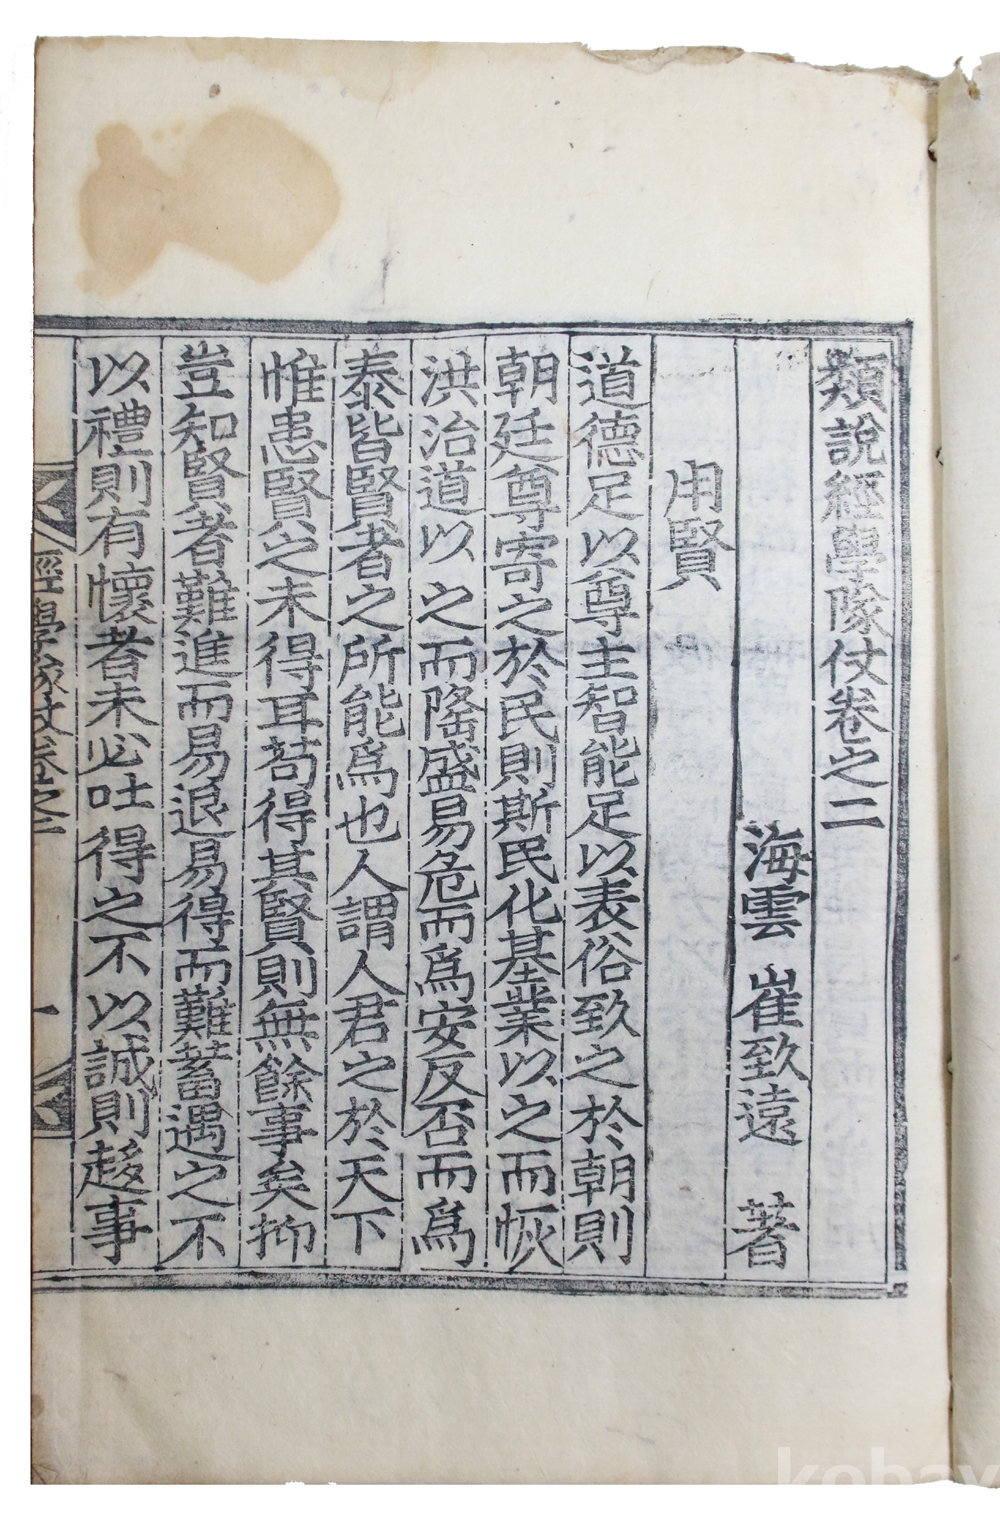 類說經學隊仗卷之二
海雲 崔致遠 著
用賢
道德足以尊主智能足以表俗致之於朝則
朝廷尊寄之於民則斯民化基業以之而恢
洪治道以之而隆盛易危而爲安反否而爲
泰皆賢者之所能爲也人謂人君之於天下
惟患賢之未得耳苟得其賢則無餘事矣抑
豈知賢者難進而易退易得而難蓄遇之不
以禮則有懷者未必吐得之不以誠則趍事
經學隊仗卷之二
一
kobay